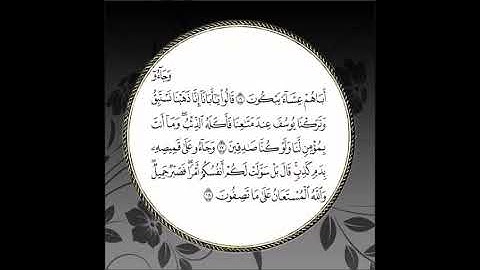 وَجَآءُوٓ
أَبَاهُمْ عِشَآءً يَبْكُونَ ۝١٦ قَالُوا۟ يَـٰٓأَبَانَآ إِنَّا ذَهَبْنَا نَسْتَبِقُ
وَتَرَكْنَا يُوسُفَ عِندَ مَتَـٰعِنَا فَأَكَلَهُ ٱلذِّئْبُ ۖ وَمَآ أَنتَ
بِمُؤْمِنٍ لَّنَا وَلَوْ كُنَّا صَـٰدِقِينَ ۝١٧ وَجَآءُو عَلَىٰ قَمِيصِهِۦ
بِدَمٍ كَذِبٍ ۚ قَالَ بَلْ سَوَّلَتْ لَكُمْ أَنفُسُكُمْ أَمْرًا ۖ فَصَبْرٌ جَمِيلٌ ۖ
وَٱللَّهُ ٱلْمُسْتَعَانُ عَلَىٰ مَا تَصِفُونَ ۝١٨